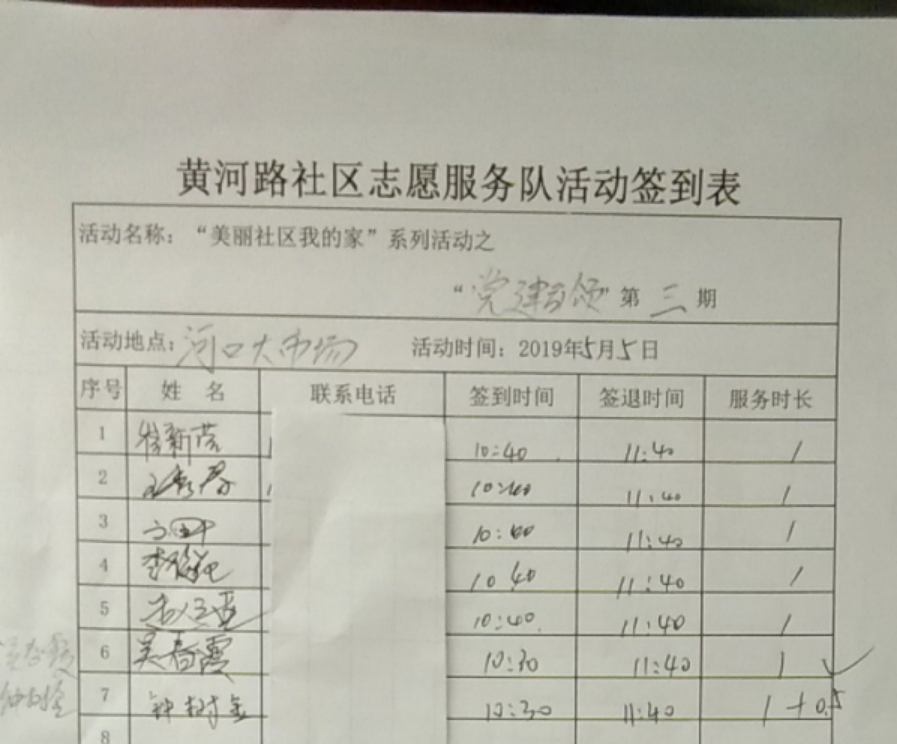 黄河路社区志愿服务队活动签到表
活动名称：“美丽社区我的家”系列活动之
“党建引领”第三期
活动地点：河口大市场 活动时间：2019年5月5日
序号 姓名 联系电话 签到时间 签退时间 服务时长
1 10:40 11:40 1
2 10:40 11:40 1
3 10:40 11:40 1
4 10 40 11:40 1
5 10:40 11:40 1
6 吴春霞 10:30 11:40 1
7 钟树金 10:30 11:40 1+0.5
8